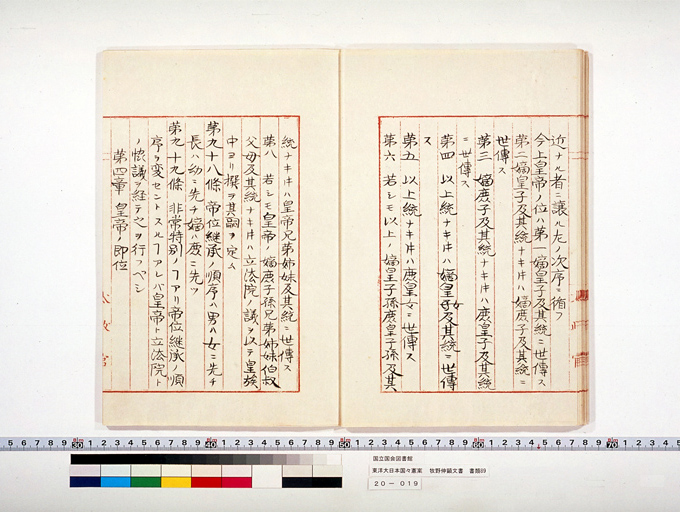 近ナル者ニ譲ル左ノ次序ニ循フ
今上皇帝ノ位ハ第一嫡皇子及其統ニ世傳ス
第二嫡皇子及其統ナキ時ハ嫡庶子及其統ニ
世傳ス
第三 嫡庶子及其統ナキ時ハ庶皇子及其統
ニ世傳ス
第四 以上統ナキ時ハ嫡皇女及其統ニ世傳
ス
第五 以上統ナキ時ハ庶皇女ニ世傳ス
第六 若シモ以上ノ嫡皇子孫庶皇子孫及其
統ナキ時ハ皇帝兄弟姉妹及其統ニ世傳ス
第八 若シモ皇帝ノ嫡庶子孫兄弟姉妹伯叔
父母及其統ナキ時ハ立法院ノ議ヲ以テ皇族
中ヨリ撰ヲ其嗣ヲ定ム
第九十八條 帝位継承ノ順序ハ男ハ女ニ先チ
長ハ幼ニ先チ嫡ハ庶ニ先ツ
第九十九條 非常特別ノヿアリ帝位継承ノ順
序ヲ変セントスルヿアレバ皇帝ト立法院ト
ノ恊議ヲ経テ之ヲ行フベシ
第四章 皇帝ノ即位
太政官
30 40 50 60 70
国立国会図書館
東洋大日本国々憲案 牧野伸顕文書 書類69
20-019